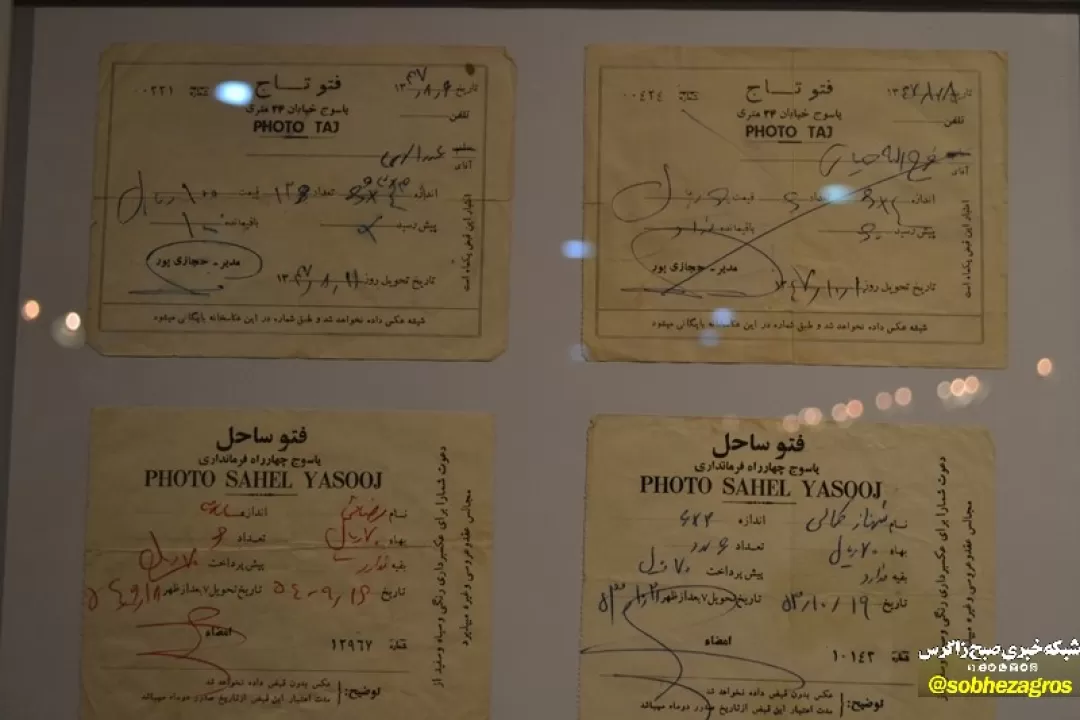 فتو تاج
شماره ۰۰۲۲۱
یاسوج خیابان ۲۴ متری
PHOTO TAJ
تاریخ ۱۳۴۷/۸/۹
تلفن
آقای
اندازه ۴×۶ تعداد قیمت ۱۰۰ ریال
پیش رسید باقیمانده
مدیر - حجازی پور
تاریخ تحویل روز ۱۳۴۷/۸/۱۱
اعتبار این قبض یکماه است
شیشه عکس داده نخواهد شد و طبق شماره در این عکاسخانه بایگانی میشود
فتو تاج
شماره ۰۰۴۲۴
یاسوج خیابان ۲۴ متری
PHOTO TAJ
تاریخ
تلفن
آقای
اندازه ۶×۴ تعداد ۶ قیمت ریال
پیش رسید باقیمانده
مدیر - حجازی پور
تاریخ تحویل روز ۱۳۴۷/۱۰/۱
اعتبار این قبض یکماه است
شیشه عکس داده نخواهد شد و طبق شماره در این عکاسخانه بایگانی میشود
فتو ساحل
یاسوج چهارراه فرمانداری
PHOTO SAHEL YASOOJ
نام اندازه
بهاء ۷۰ ریال تعداد ۶
بقیه ندارد پیش پرداخت ۷۰ ریال
تاریخ ۵۴-۹-۱۶ تاریخ تحویل ۷ بعدازظهر ۵۴/۹/۱۸
امضاء
شماره ۱۲۹۶۷
توضیح: عکس بدون قبض داده نخواهد شد
مدت اعتبار این قبض ازتاریخ صادر دوماه میباشد
دعوت شمارا برای عکسبرداری رنگی و سیاه و سفید از
مجالس عقدوعروسی وغیره میپذیرد
فتو ساحل
یاسوج چهارراه فرمانداری
PHOTO SAHEL YASOOJ
نام شهناز کمالی اندازه ۶×۴
بهاء ۷۰ ریال تعداد ۶ عدد
بقیه ندارد پیش پرداخت ۷۰ ریال
تاریخ ۵۳/۱۰/۱۹ تاریخ تحویل ۷ بعدازظهر
امضاء
شماره ۱۰۱۴۳
توضیح: عکس بدون قبض داده نخواهد شد
مدت اعتبار این قبض ازتاریخ صدر دوماه میباشد
دعوت شمارا برای عکسبرداری رنگی و
مجالس عقدوعروسی وغیره میپذیرد
شبکه خبری صبح زاگرس
@sobhezagros